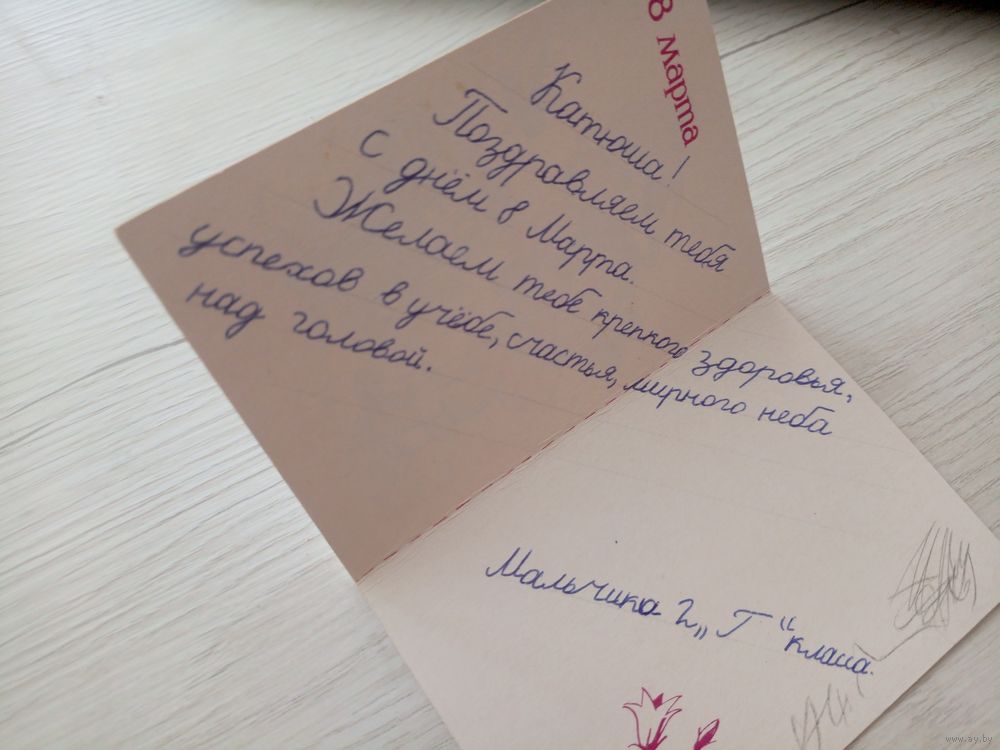 8 марта
Катюша!
Поздравляем тебя
с днём 8 Марта.
Желаем тебе крепкого здоровья,
успехов в учёбе, счастья, мирного неба
над головой.
Мальчики 2 „Г“ класса.
www.ay.by